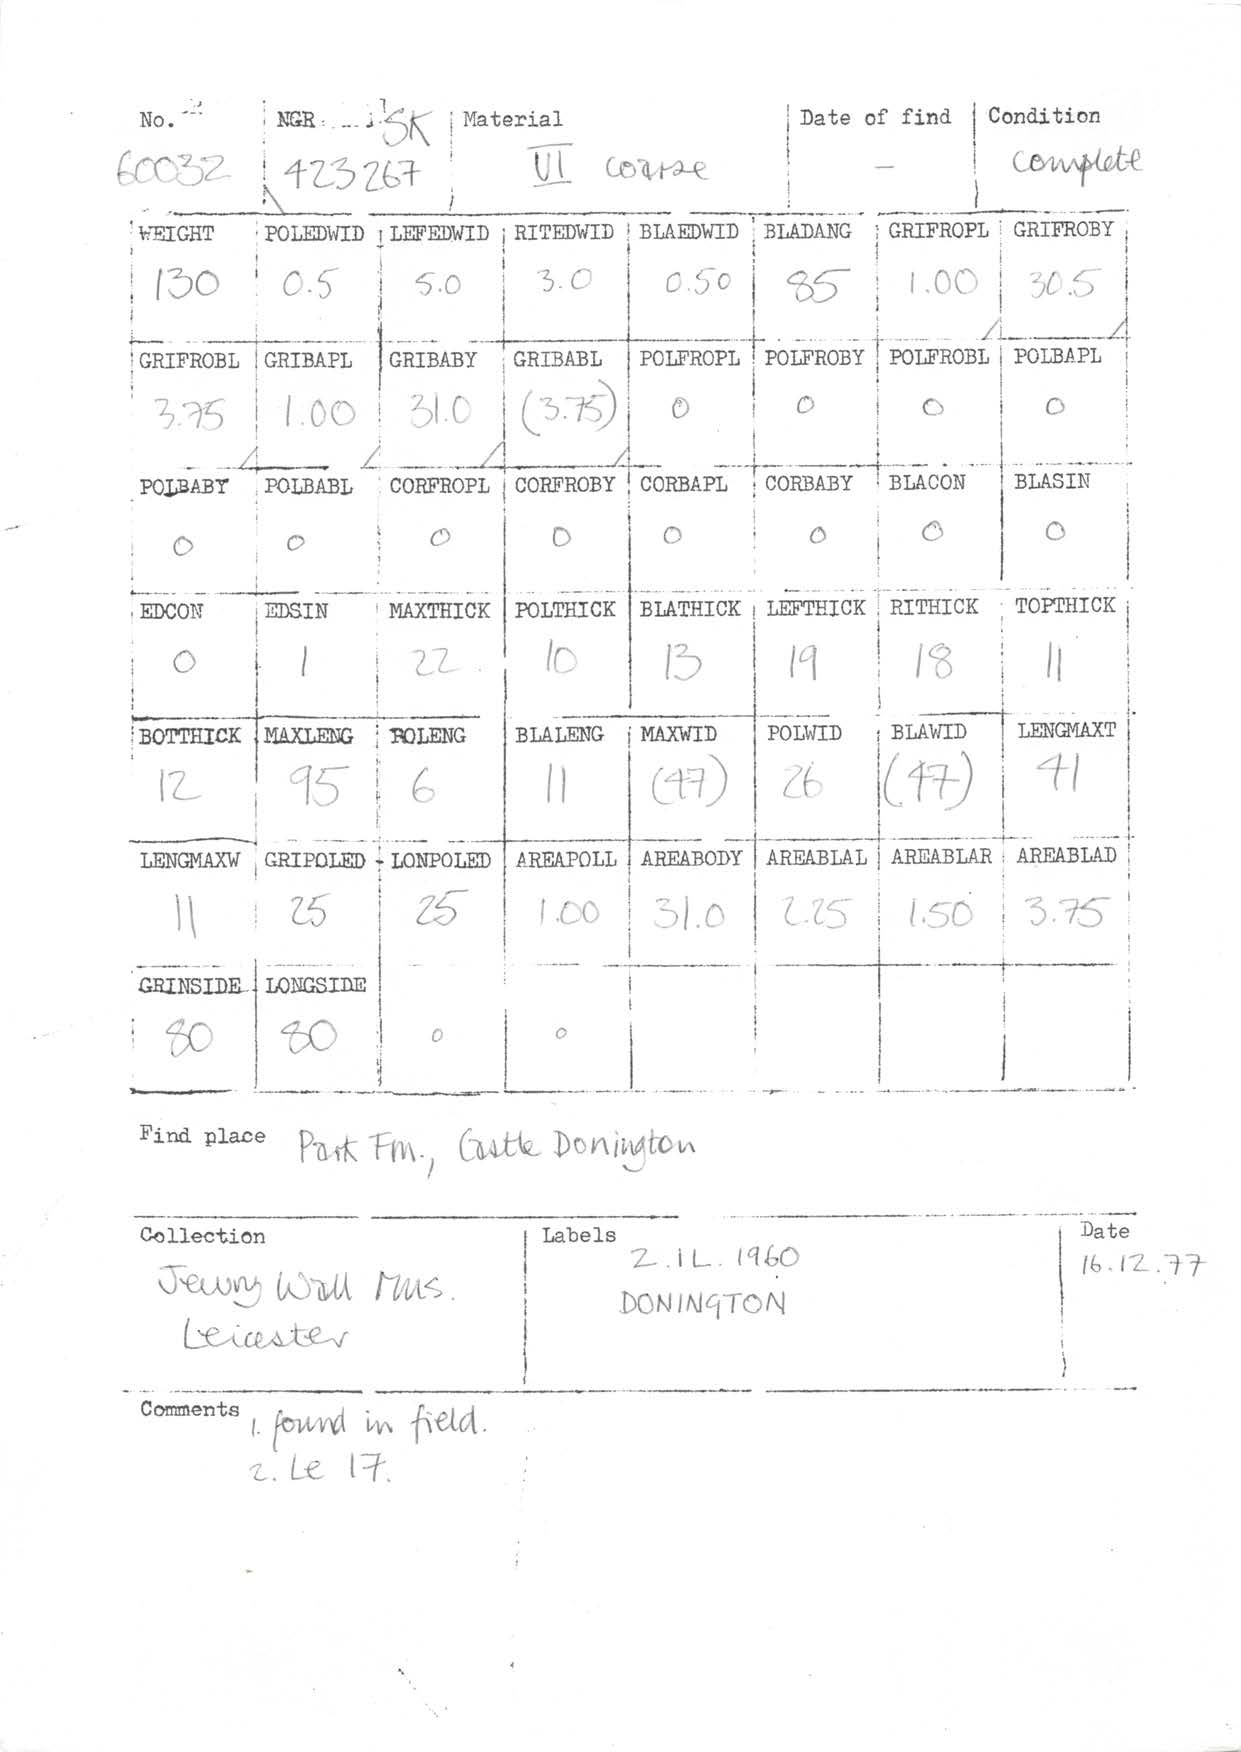 No. NGR SK Material Date of find Condition
60032 423267 VI coarse - complete
WEIGHT POLEDWID LEFEDWID RITEDWID BLAEDWID BLADANG GRIFROPL GRIFROBY
130 0.5 5.0 3.0 0.50 85 1.00 30.5
GRIFROBL GRIBAPL GRIBABY GRIBABL POLFROPL POLFROBY POLFROBL POLBAPL
3.75 1.00 31.0 (3.75) 0 0 0 0
POLBABY POLBABL CORFROPL CORFROBY CORBAPL CORBABY BLACON BLASIN
0 0 0 0 0 0 0 0
EDCON EDSIN MAXTHICK POLTHICK BLATHICK LEFTHICK RITHICK TOPTHICK
0 1 22 10 13 19 18 11
BOTTHICK MAXLENG POLENG BLALENG MAXWID POLWID BLAWID LENGMAXT
12 95 6 11 (47) 26 (47) 41
LENGMAXW GRIPOLED LONPOLED AREAPOLL AREABODY AREABLAL AREABLAR AREABLAD
11 25 25 1.00 31.0 2.25 1.50 3.75
GRINSIDE LONGSIDE
80 80 0 0
Find place Park Fm., Castle Donington
Collection Labels Date
2.IL.1960 16.12.77
Jewry Wall Mus. DONINGTON
Leicester
Comments 1. found in field.
2. Le 17.